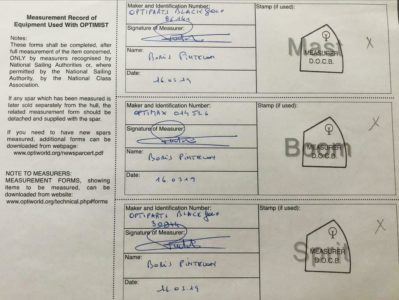 Measurement Record of
Equipment Used With OPTIMIST
Notes:
These forms shall be completed, after
full measurement of the item concerned,
ONLY by measurers recognised by
National Sailing Authorities or, where
permitted by the National Sailing
Authority, by the National Class
Association.
If any spar which has been measured is
later sold separately from the hull, the
related measurement form should be
detached and supplied with the spar.
If you need to have new spars
measured, additional forms can be
downloaded from webpage:
www.optiworld.org/newsparcert.pdf
NOTE TO MEASURERS:
MEASUREMENT FORMS, showing
items to be measured, can be
downloaded from website:
www.optiworld.org/technical.php#forms
Maker and Identification Number:
OPTIPARTS BLACK GOLD
Signature of Measurer:
Name:
BORIS
Date:
16.03.19
Stamp (if used):
Mast
MEASURER
D.O.C.B.
X
Maker and Identification Number:
OPTIMAX
Signature of Measurer:
Name:
BORIS
Date:
16.03.19
Stamp (if used):
Boom
MEASURER
D.O.C.B.
X
Maker and Identification Number:
OPTIPARTS BLACK GOLD
Signature of Measurer:
Name:
BORIS
Date:
16.03.19
Stamp (if used):
Sprit
MEASURER
D.O.C.B.
X